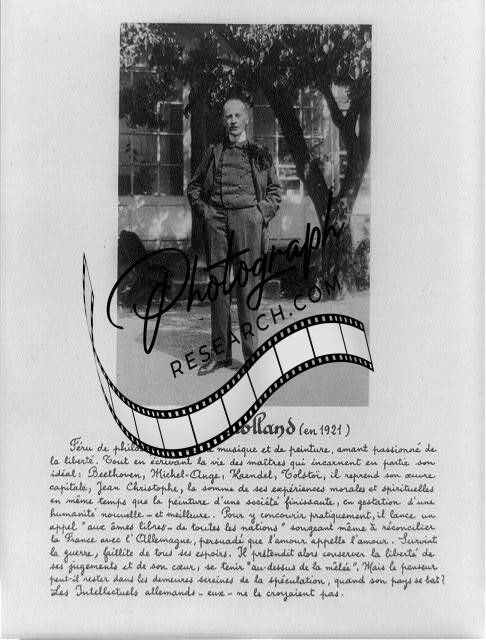 Photograph
RESEARCH.COM
olland (en 1921)
Féru de philo musique et de peinture, amant passionné de
la liberté. Tout en écrivant la vie des maîtres qui incarnent en partie son
idéal: Beethoven, Michel-Ange, Haendel, Tolstoï, il reprend son œuvre
capitale, Jean Christophe, la somme de ses expériences morales et spirituelles
en même temps que la peinture d'une société finissante, en gestation d'une
humanité nouvelle - et meilleure. Pour y concourir pratiquement, il lance un
appel "aux âmes libres - de toutes les nations" songeant même à réconcilier
la France avec l'Allemagne, persuadé que l'amour appelle l'amour. Survint
la guerre, faillite de tous ses espoirs. Il prétendit alors conserver la liberté de
ses jugements et de son cœur, se tenir "au-dessus de la mêlée". Mais le penseur
peut-il rester dans les demeures sereines de la spéculation, quand son pays se bat?
Les Intellectuels allemands - eux - ne le croyaient pas.